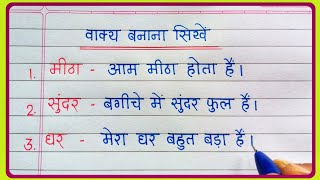 वाक्य बनाना सिखें
1. मीठा - आम मीठा होता हैं।
2. सुंदर - बगीचे में सुंदर फुल हैं।
3. घर - मेरा घर बहुत बड़ा हैं।